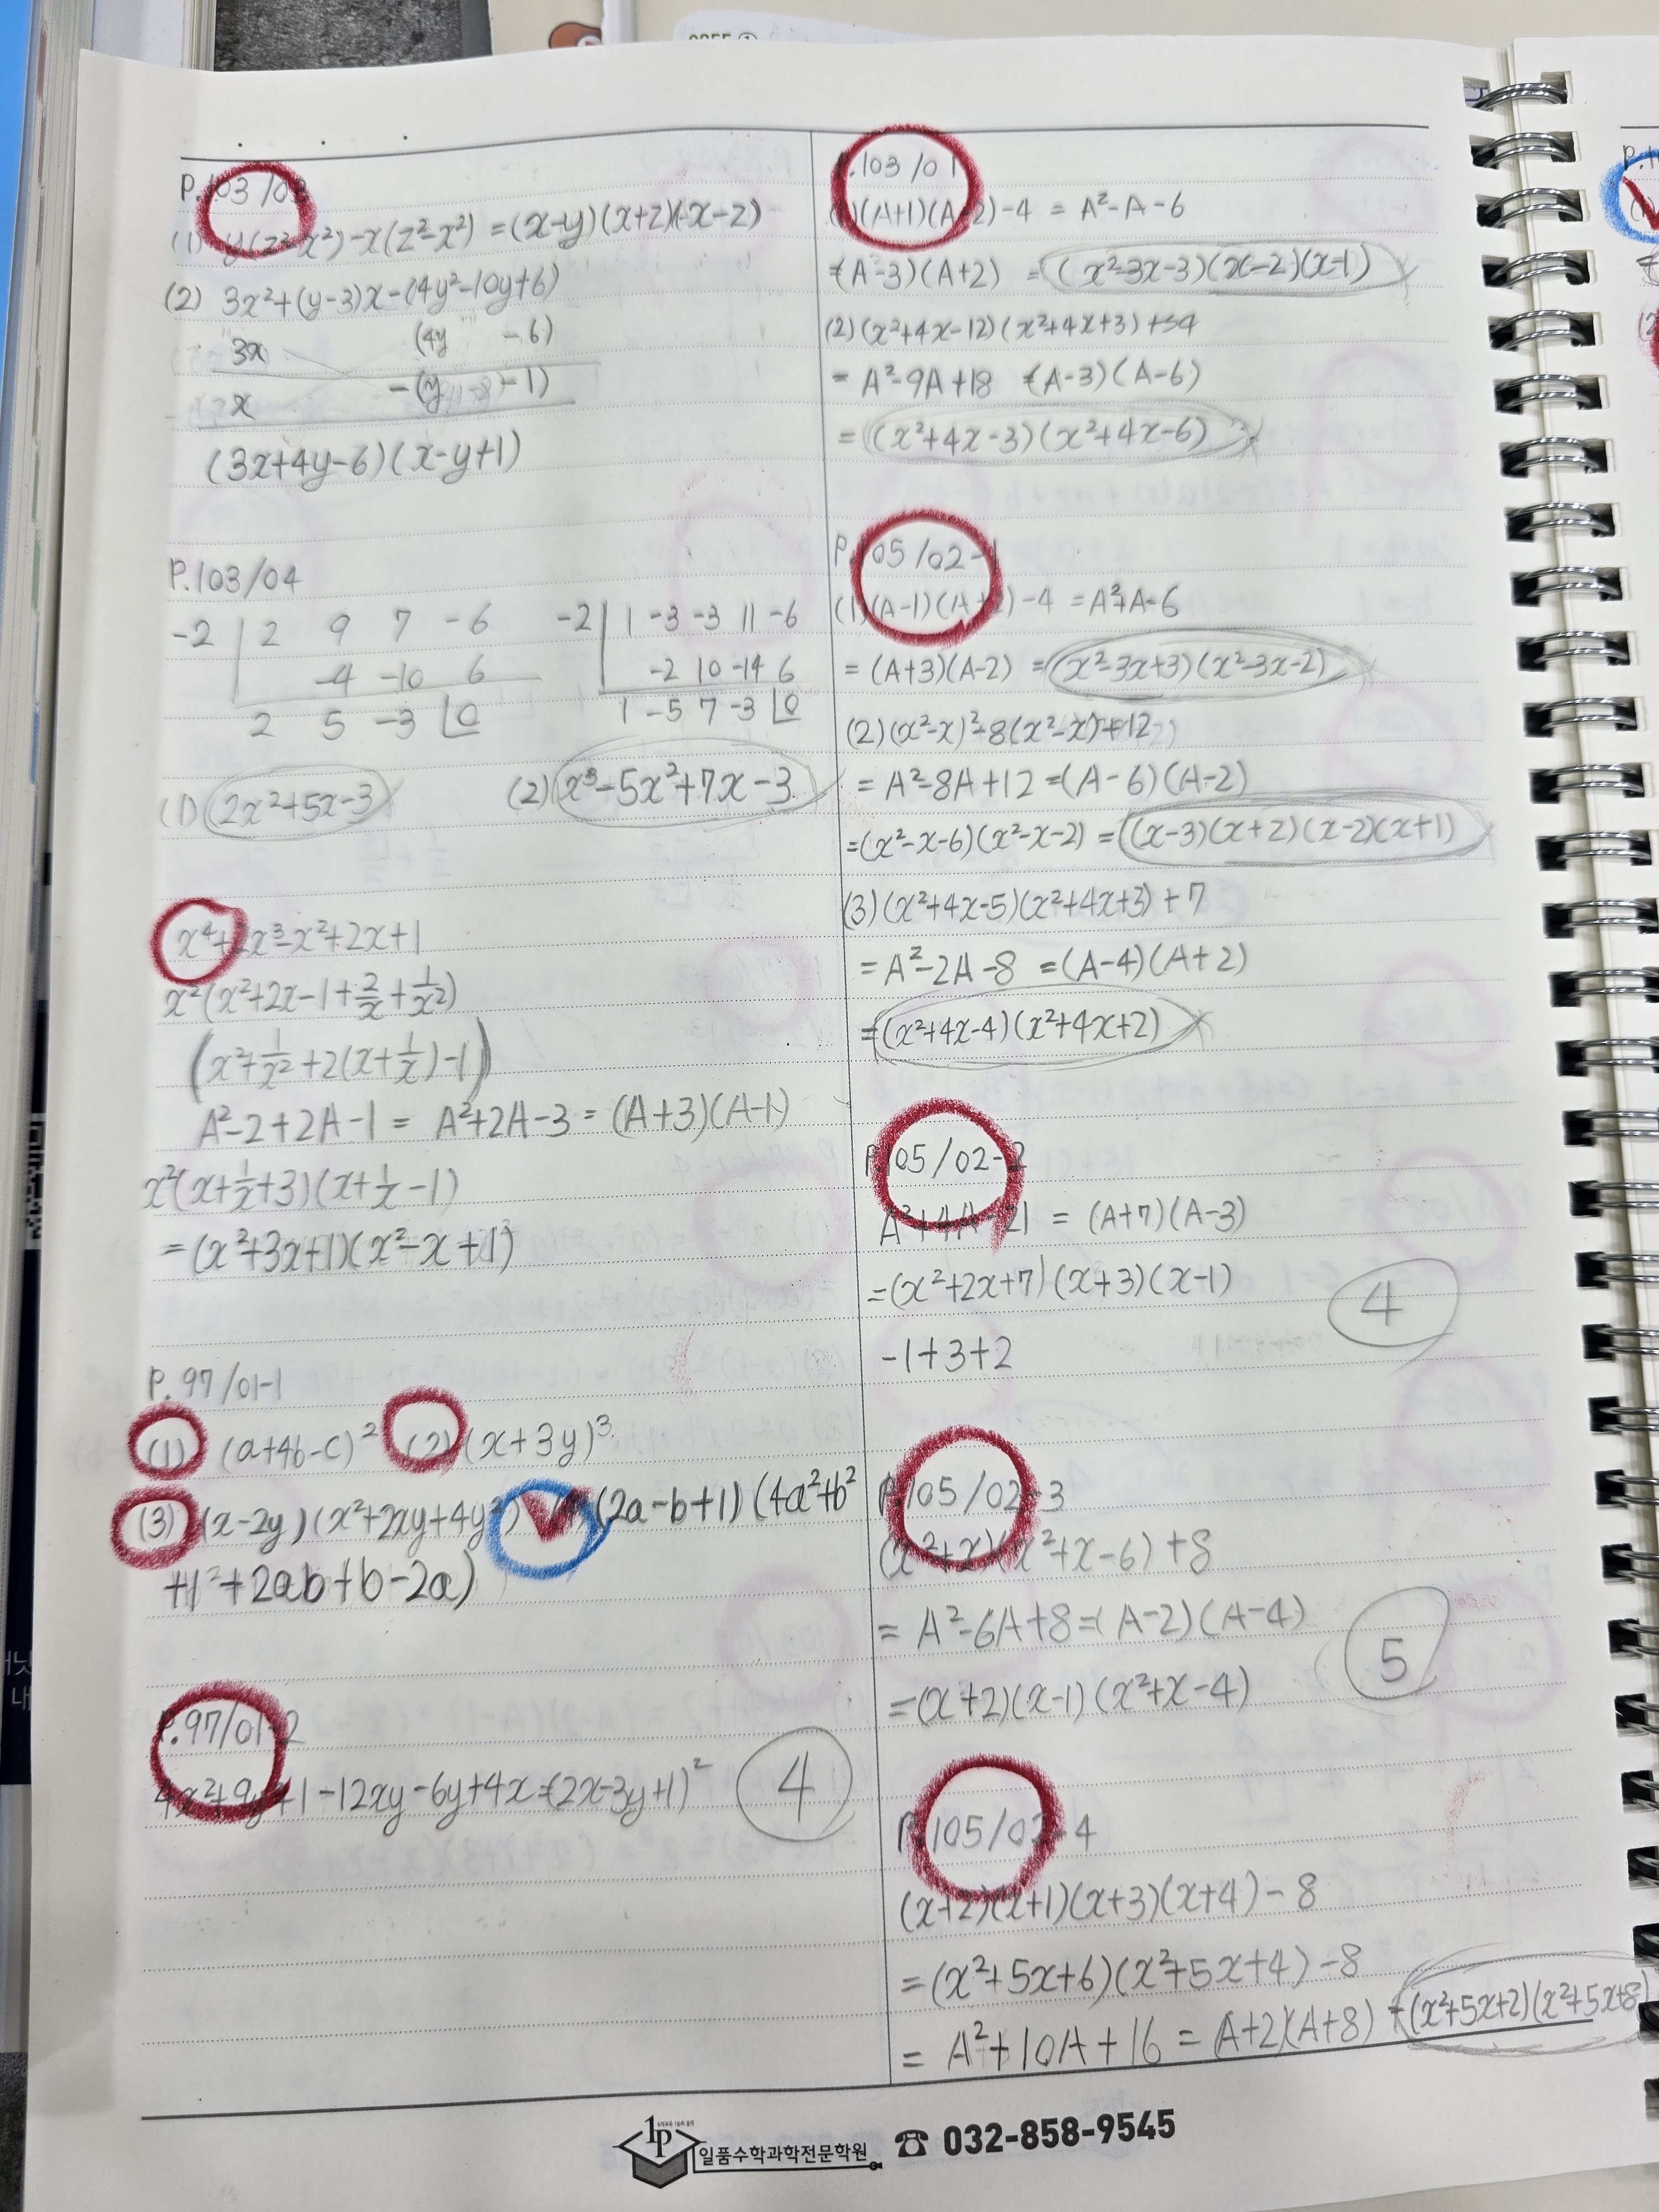 P.103/03
(1) y(z²-x²)-x(z²-x²) =(x-y)(x+z)(x-z)
(2) 3x²+(y-3)x-(4y²-10y+6)
3x (4y -6)
x -(y -1)
(3x+4y-6)(x-y+1)
P.103/04
-2 | 2 9 7 -6
-4 -10 6
2 5 -3 | 0
-2 | 1 -3 -3 11 -6
-2 10 -14 6
1 -5 7 -3 | 0
(1) 2x²+5x-3
(2) x³-5x²+7x-3
x⁴+2x³-x²+2x+1
x²(x²+2x-1+2/x+1/x²)
(x²+1/x²+2(x+1/x)-1)
A²-2+2A-1 = A²+2A-3 = (A+3)(A-1)
x²(x+1/x+3)(x+1/x-1)
=(x²+3x+1)(x²-x+1)
P.97/01-1
(1) (a+4b-c)² (2) (x+3y)³
(3) (x-2y)(x²+2xy+4y²) (4) (2a-b+1)(4a²+b²
+1²+2ab+b-2a)
P.97/01-2
4x²+9y²+1-12xy-6y+4x=(2x-3y+1)² 4
P.103/01
(1)(A+1)(A-2)-4 = A²-A-6
=(A-3)(A+2) =(x²-3x-3)(x-2)(x-1)
(2)(x²+4x-12)(x²+4x+3)+54
= A²-9A+18 =(A-3)(A-6)
= (x²+4x-3)(x²+4x-6)
P.105/02-1
(1)(A-1)(A+2)-4 =A²+A-6
= (A+3)(A-2) =(x²-3x+3)(x²-3x-2)
(2)(x²-x)²-8(x²-x)+12
= A²-8A+12 =(A-6)(A-2)
=(x²-x-6)(x²-x-2) =(x-3)(x+2)(x-2)(x+1)
(3)(x²+4x-5)(x²+4x+3)+7
= A²-2A-8 =(A-4)(A+2)
=(x²+4x-4)(x²+4x+2)
P.105/02-2
A²+4A-21 = (A+7)(A-3)
=(x²+2x+7)(x+3)(x-1)
-1+3+2
4
P.105/02-3
(x²+x)(x²+x-6)+8
= A²-6A+8=(A-2)(A-4)
=(x+2)(x-1)(x²+x-4)
5
P.105/02-4
(x+2)(x+1)(x+3)(x+4)-8
=(x²+5x+6)(x²+5x+4)-8
= A²+10A+16 = (A+2)(A+8) =(x²+5x+2)(x²+5x+8)
1P 일품수학과학전문학원 ☎ 032-858-9545